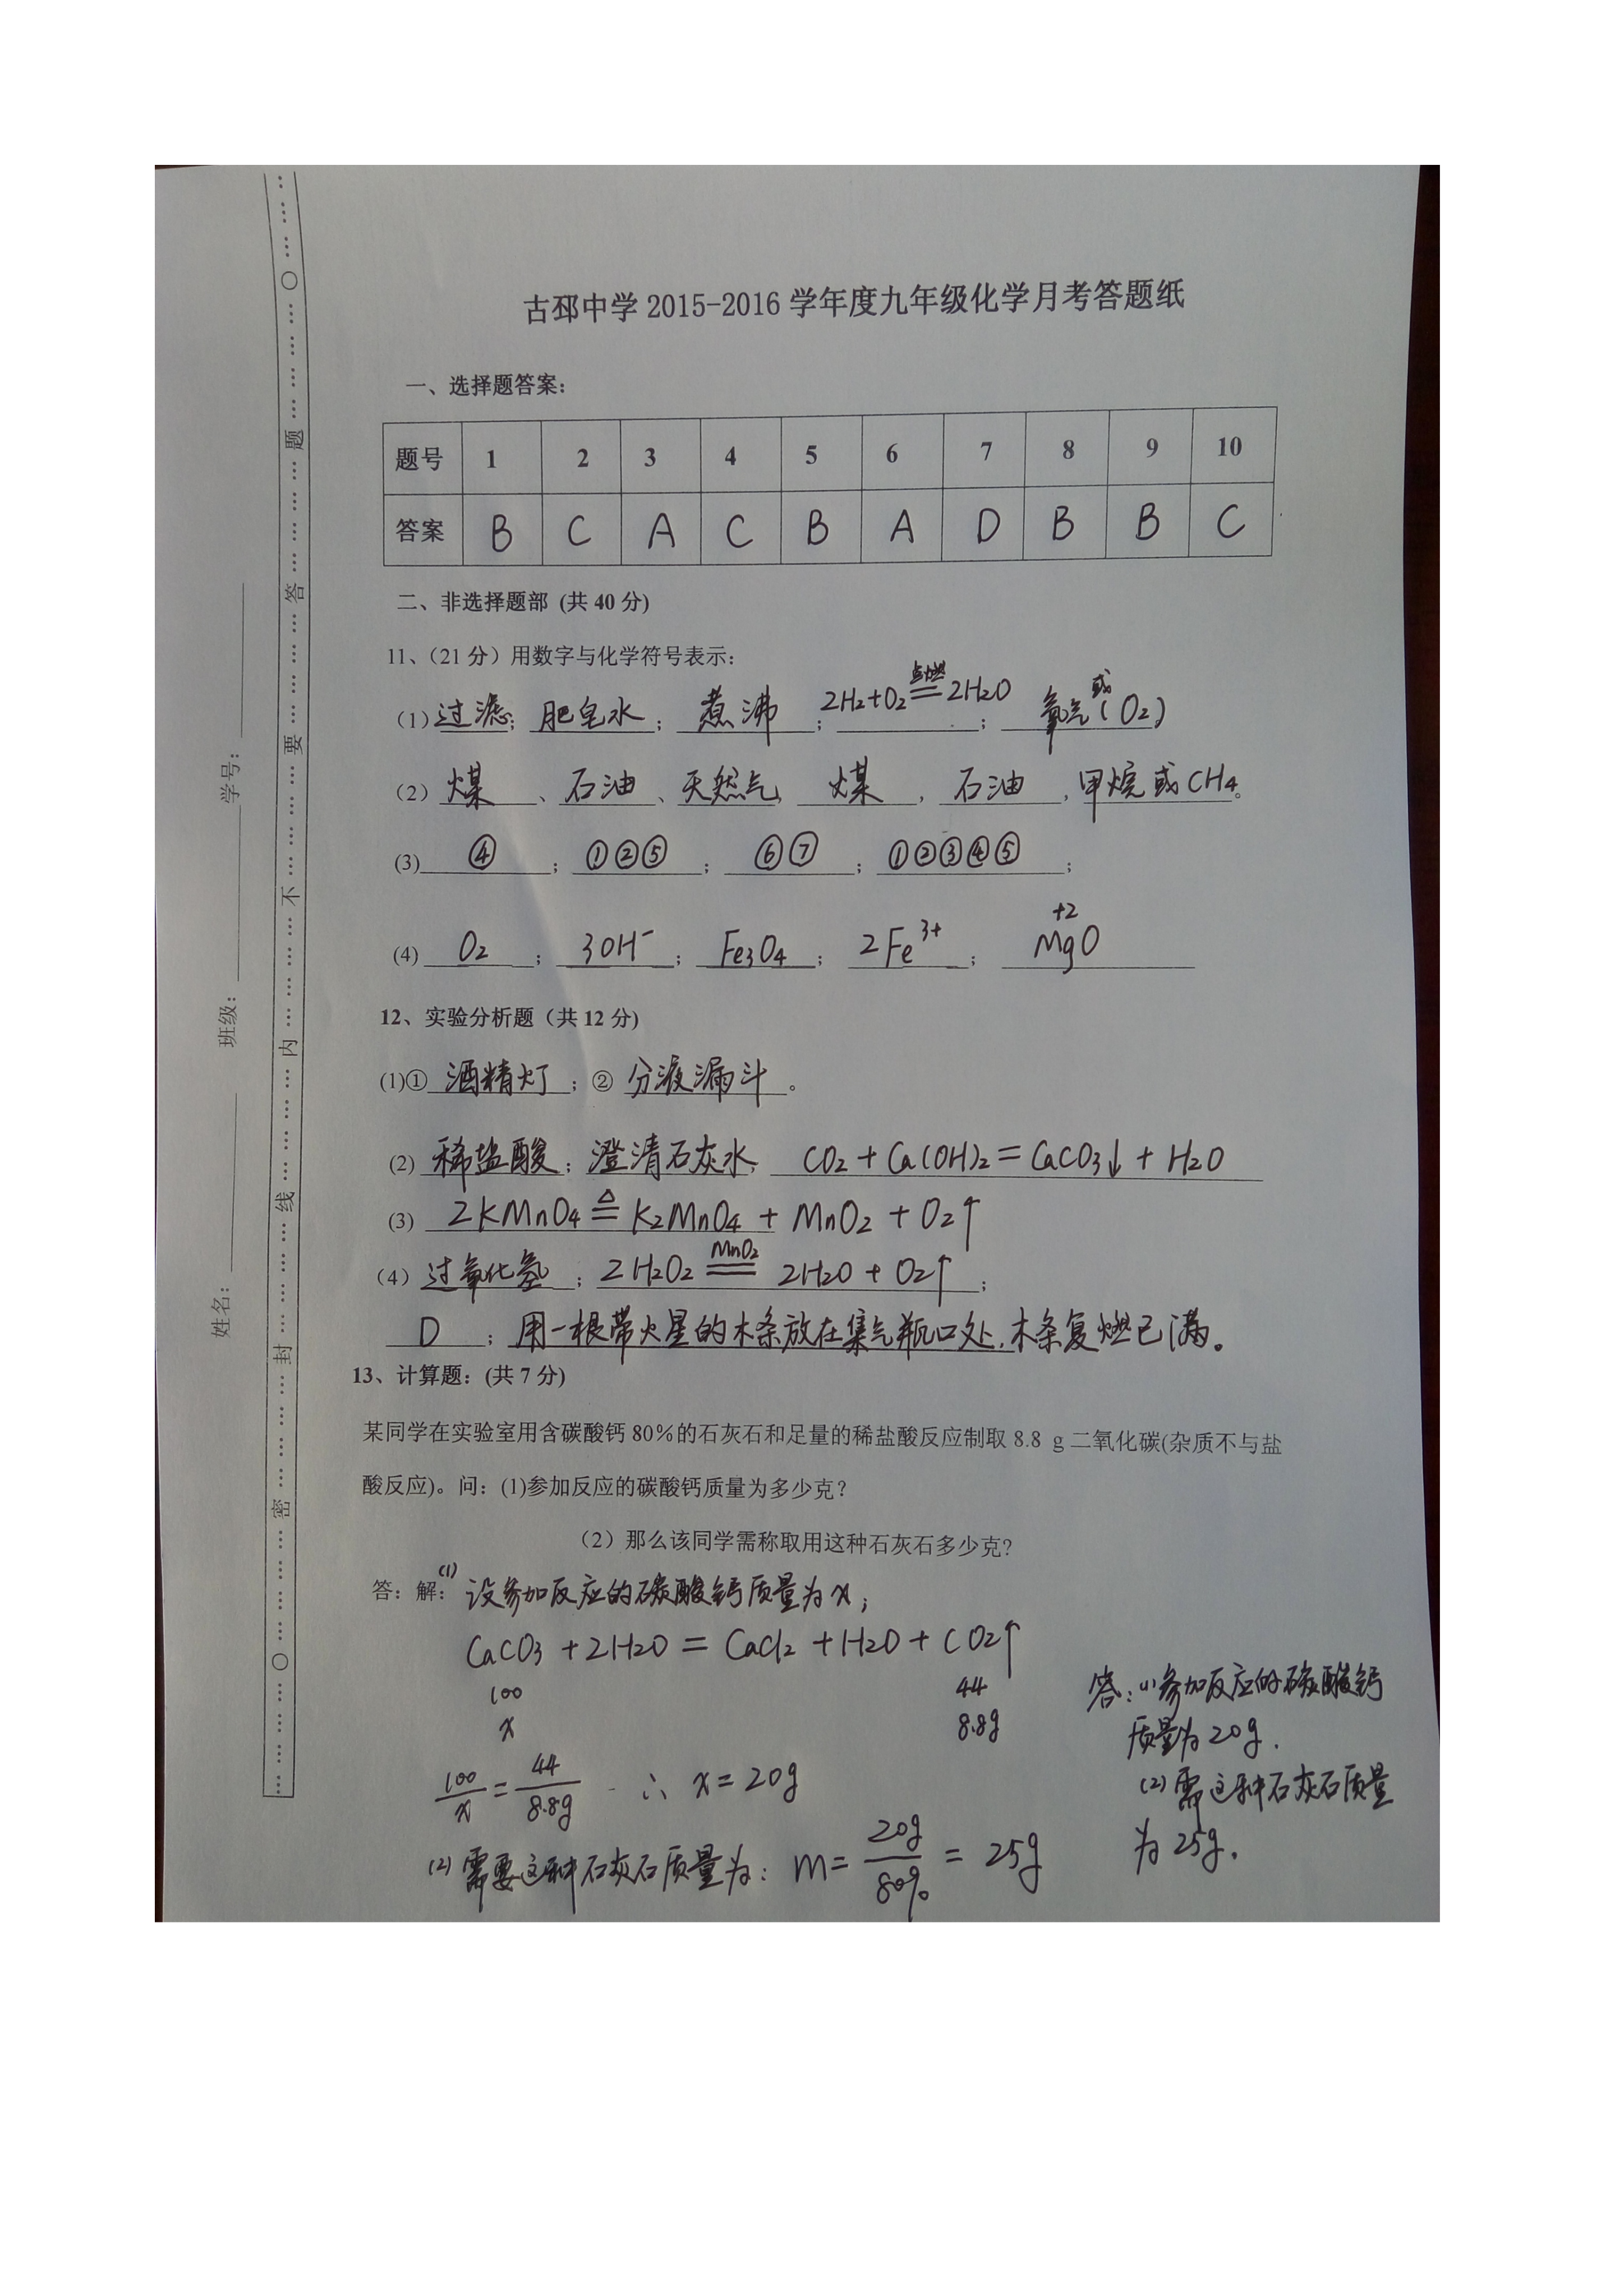 古邳中学 2015-2016 学年度九年级化学月考答题纸
一、选择题答案：
题号 1 2 3 4 5 6 7 8 9 10
答案 B C A C B A D B B C
二、非选择题部 (共 40 分)
11、（21 分）用数字与化学符号表示：
（1）过滤；肥皂水；煮沸；2H₂+O₂ 点燃═ 2H₂O；氧气（或O₂）
（2）煤、石油、天然气，煤，石油，甲烷或CH₄。
(3) ④；①②⑤；⑥⑦；①②③④⑤；
(4) O₂；3OH⁻；Fe₃O₄；2Fe³⁺；+2 MgO
12、实验分析题（共 12 分)
(1)① 酒精灯；② 分液漏斗。
(2) 稀盐酸；澄清石灰水；CO₂ + Ca(OH)₂ = CaCO₃↓ + H₂O
(3) 2KMnO₄ △═ K₂MnO₄ + MnO₂ + O₂↑
（4）过氧化氢；2H₂O₂ MnO₂═ 2H₂O + O₂↑；
D；用一根带火星的木条放在集气瓶口处，木条复燃已满。
13、计算题：(共 7 分)
某同学在实验室用含碳酸钙 80%的石灰石和足量的稀盐酸反应制取 8.8 g 二氧化碳(杂质不与盐
酸反应)。问：(1)参加反应的碳酸钙质量为多少克？
（2）那么该同学需称取用这种石灰石多少克？
答：解：(1) 设参加反应的碳酸钙质量为x；
CaCO₃ + 2H₂O = CaCl₂ + H₂O + CO₂↑
100 44
x 8.8g
100/x = 44/8.8g ∴ x = 20g
(2) 需要这种石灰石质量为：m = 20g/80% = 25g
答：(1)参加反应的碳酸钙
质量为20g.
(2)需这种石灰石质量
为25g.
姓名：
班级：
学号：
密 封 线 内 不 要 答 题